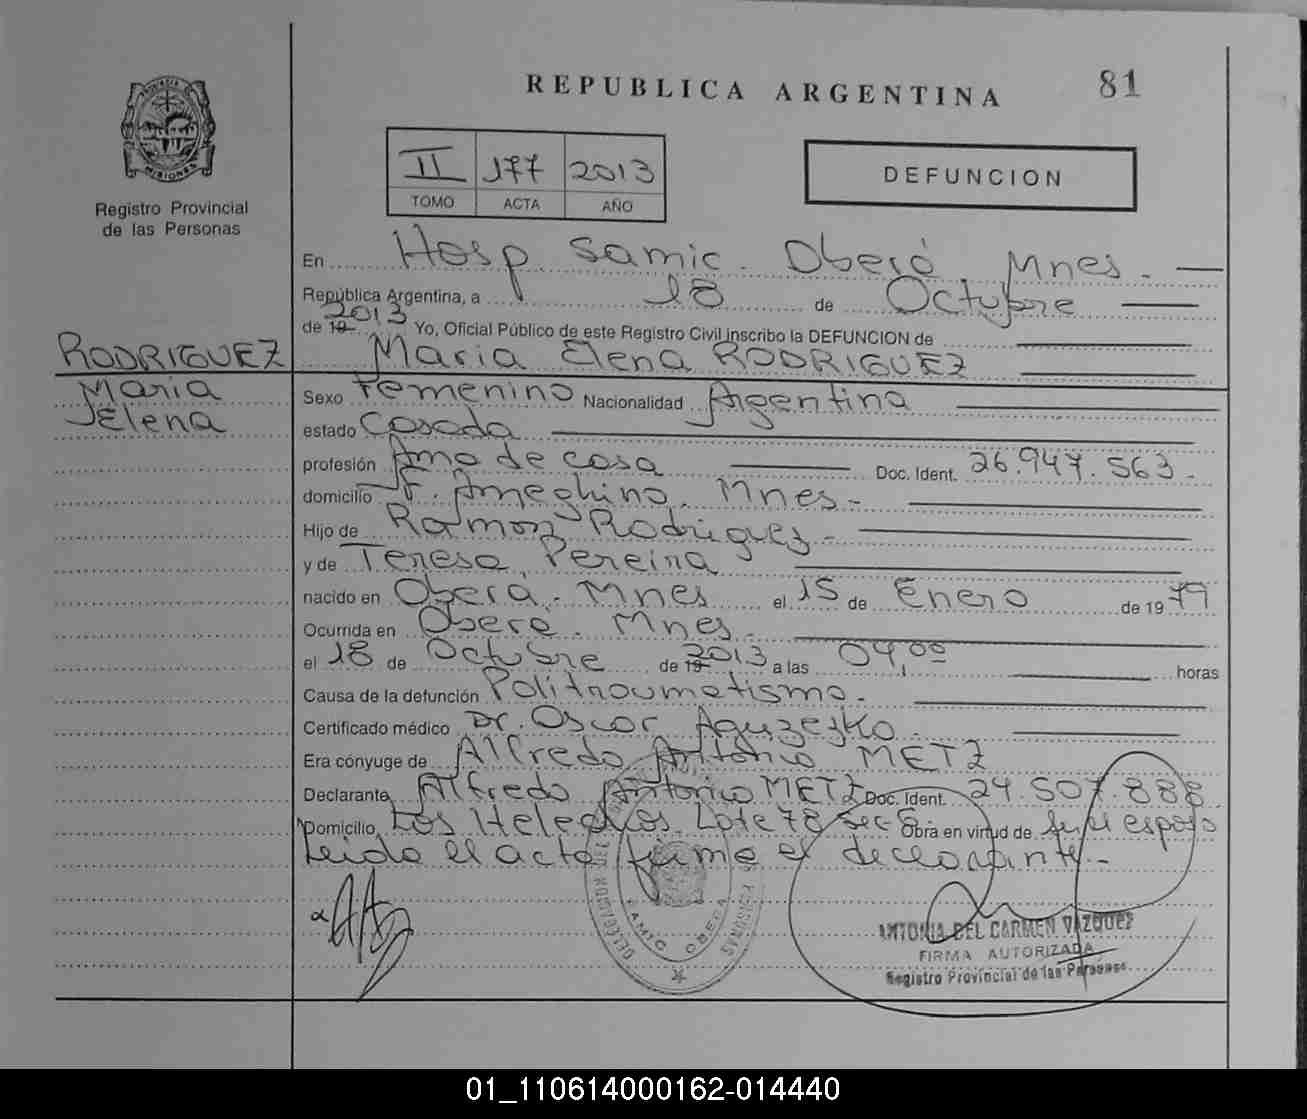 REPUBLICA ARGENTINA
81
PROVINCIA DE
MISIONES
Registro Provincial
de las Personas
II 177 2013
TOMO ACTA AÑO
DEFUNCION
En Hosp Samic. Oberá Mnes.
República Argentina, a 18 de Octubre
de 19 2013 Yo, Oficial Público de este Registro Civil inscribo la DEFUNCION de
RODRIGUEZ
Maria Elena RODRIGUEZ
Maria
Elena
Sexo Femenino Nacionalidad Argentina
estado Casada
profesión Ama de casa Doc. Ident. 26.947.563.-
domicilio F. Ameghino. Mnes-
Hijo de Ramon Rodriguez-
y de Teresa Pereira
nacido en Oberá. Mnes el 15 de Enero de 1979
Ocurrida en Obera. Mnes.
el 18 de Octubre de 19 2013 a las 04,00 horas
Causa de la defunción Politraumatismo.
Certificado médico Dr. Oscar
Era cónyuge de Alfredo Antonio METZ
Declarante Alfredo Antonio METZ Doc. Ident. 24 507.888
Domicilio Los Helechos. Lote 78 Sec 8 Obra en virtud de ser el esposo
Leida el acta firma el declarante.-
SAMIC OBERA
ANTONIA DEL CARMEN VAZQUEZ
FIRMA AUTORIZADA
Registro Provincial de las Personas
01_110614000162-014440